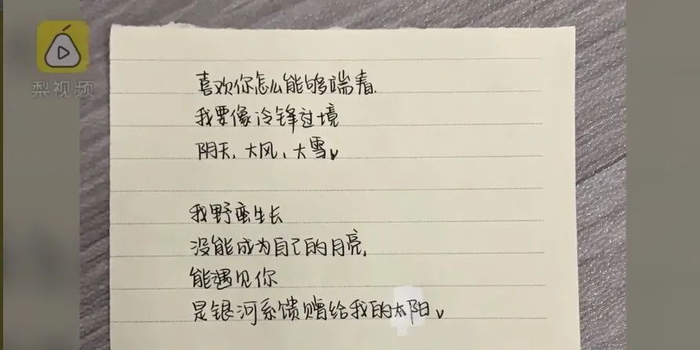 梨视频
喜欢你怎么能够端着
我要像冷锋过境
阴天、大风、大雪。
我野蛮生长
没能成为自己的月亮,
能遇见你
是银河系馈赠给我的太阳。